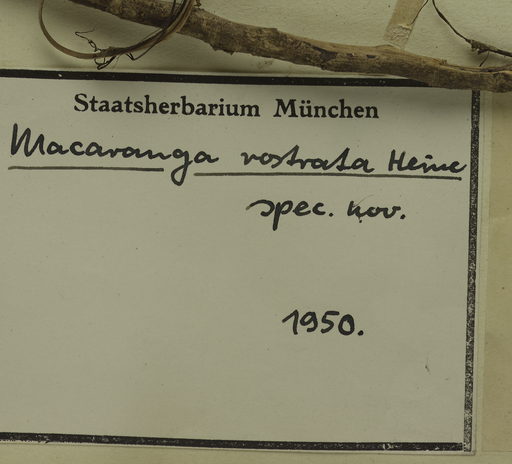 Staatsherbarium München
Macaranga rostrata Heine
spec. nov.
1950.